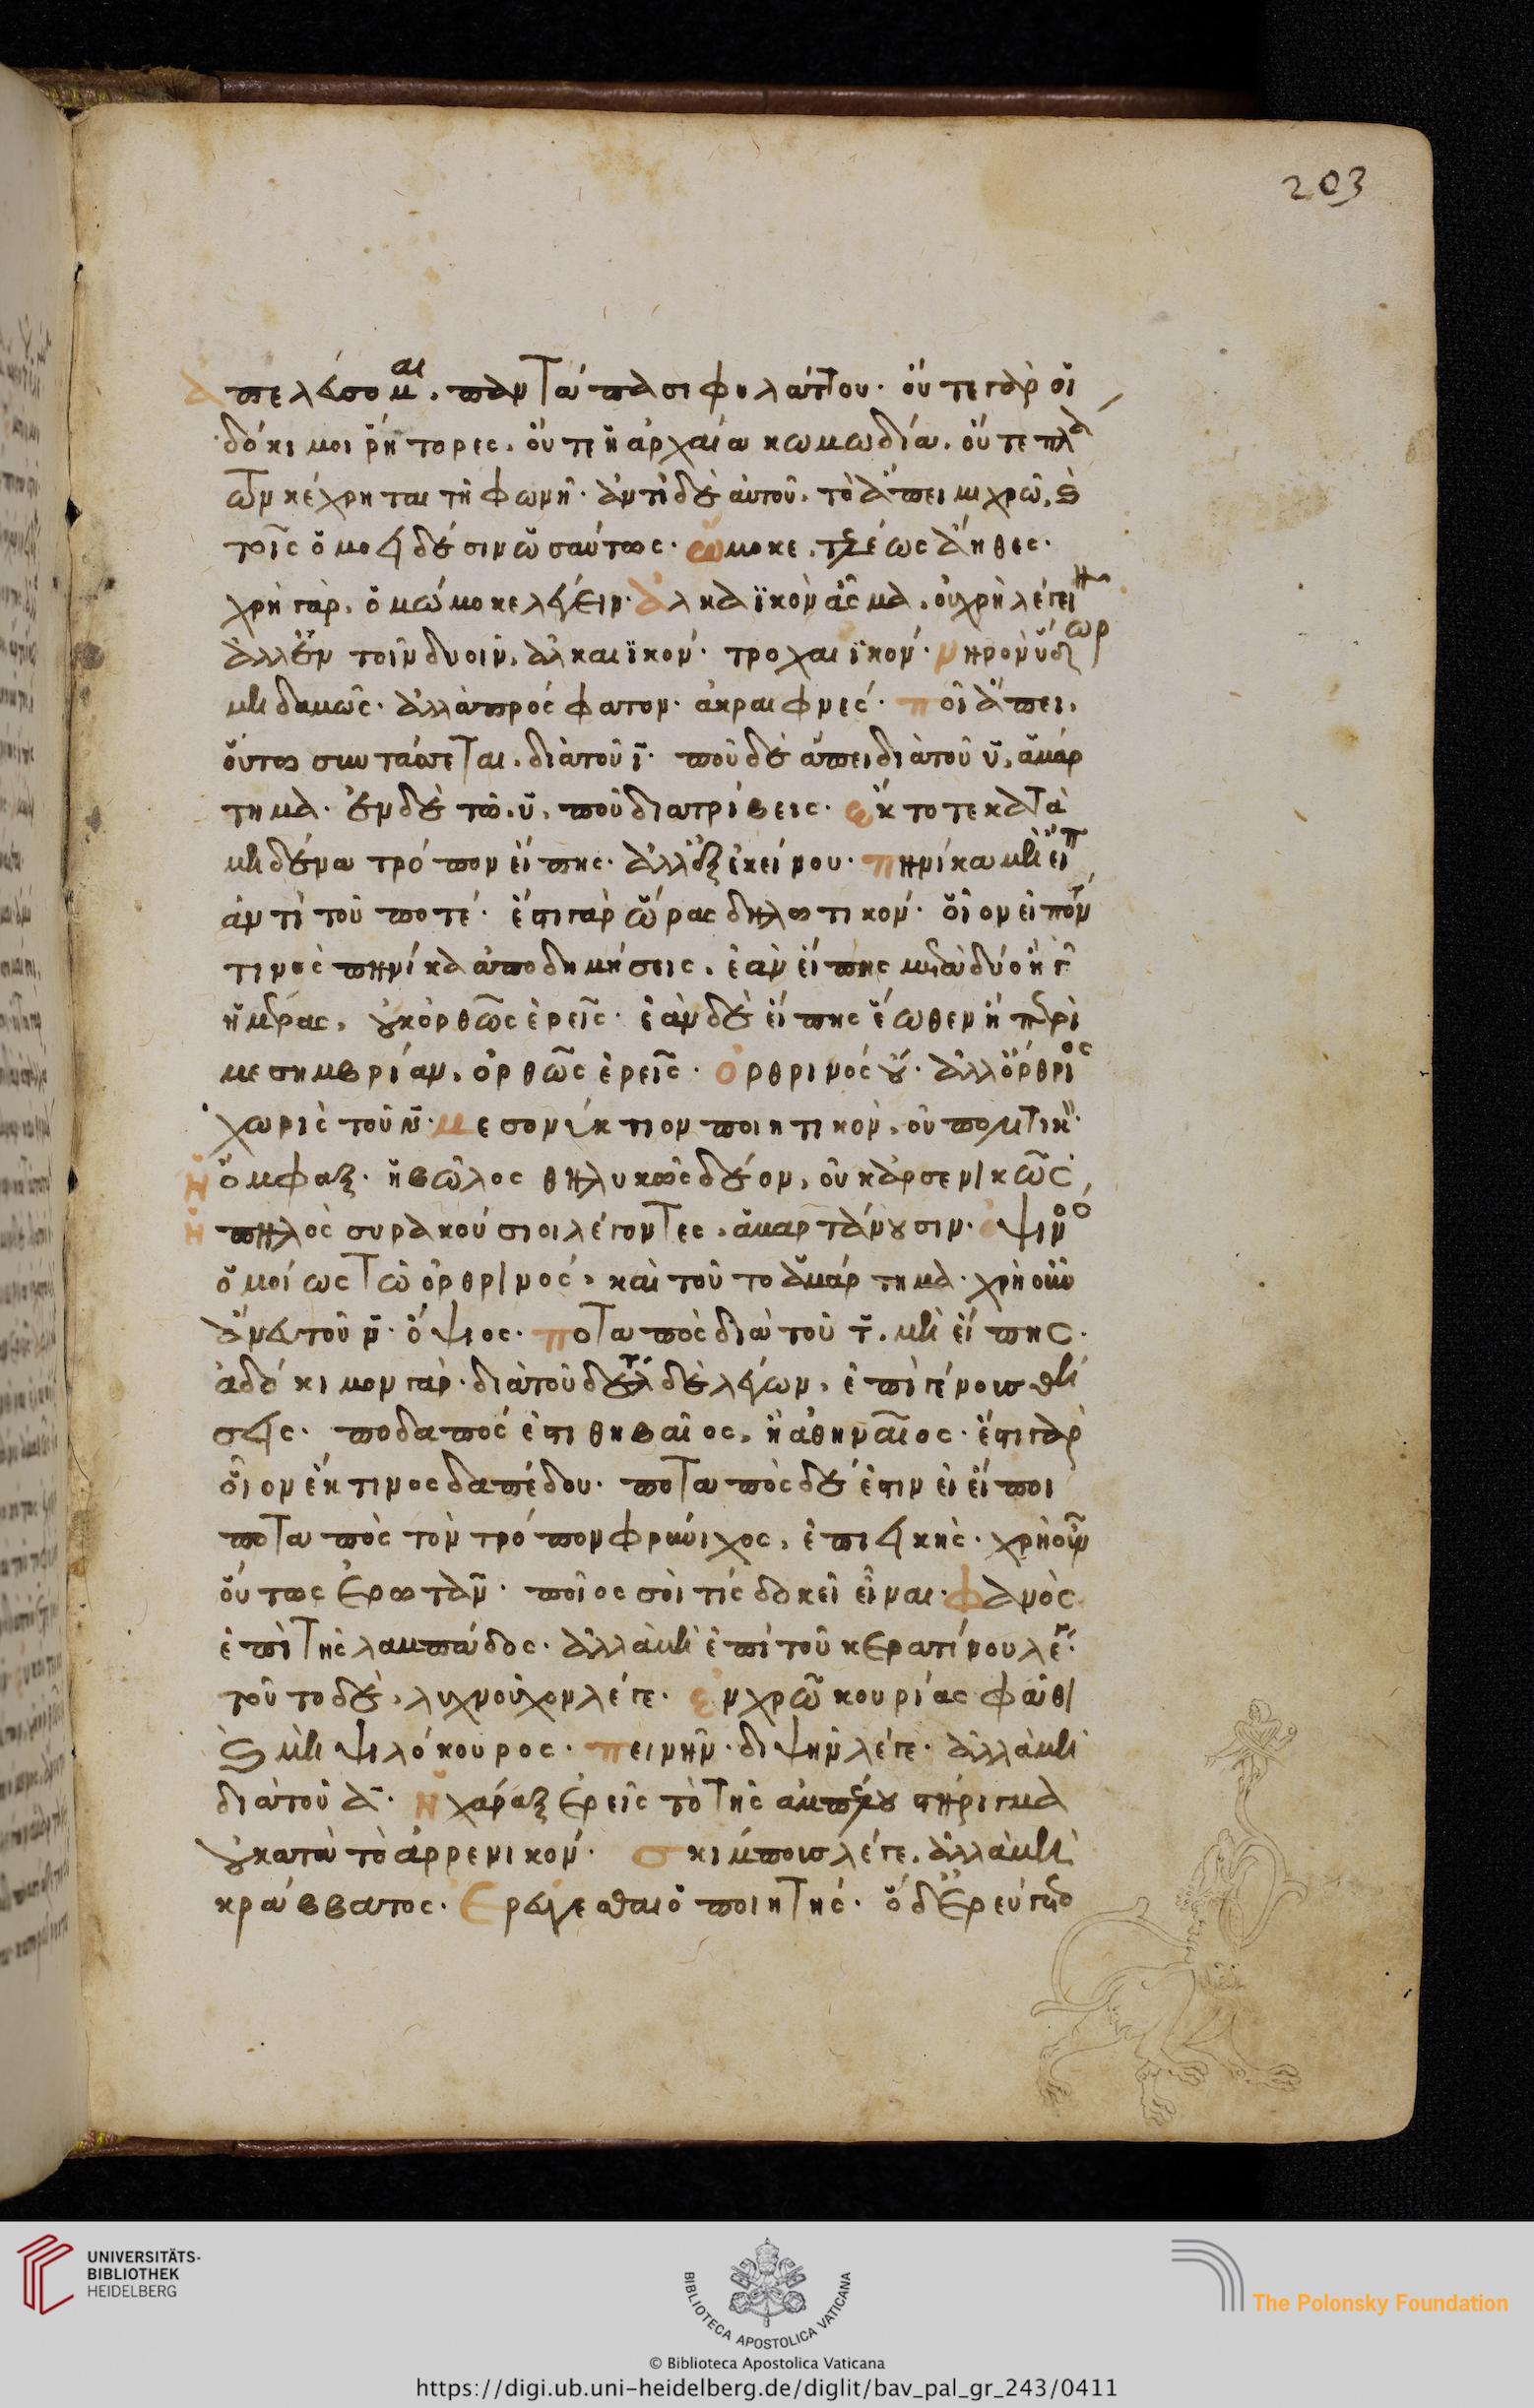 203
ἀπελεύσομαι. παντάπασι φυλάττου. οὔτε γὰρ οἱ
δόκιμοι ῥήτορες. οὔτε ἡ ἀρχαία κωμωδία. οὔτε πλά
των κέχρηται τῆ φωνῆ. ἀντὶ δὲ αὐτοῦ. τὸ ἄπειμι χρῶ, καὶ
τοῖς ὁμοειδέσιν ὡσαύτως. ὤμοκε. τελέως ἄηθες.
χρὴ γὰρ. ὀμώμοκε λέγειν. ἀλκαϊκὸν ἆσμα. οὐ χρὴ λέγειν
ἀλλ' ἓν τοῖν δυοῖν. ἀλκαιϊκόν. τροχαιϊκόν. νηρὸν ὕδωρ
μηδαμῶς. ἀλλὰ πρόσφατον. ἀκραιφνές. ποῖ ἄπει.
οὕτω συντάσσεται. διὰ τοῦ ϊ. ποῦ δὲ ἄπει διὰ τοῦ υ, ἁμάρ
τημα. ἐν δὲ τῶ. υ. ποῦ διατρίβεις. ἔκτοτε κατὰ
μηδένα τρόπον εἴπης. ἀλλ' ἐξ ἐκείνου. πηνίκα μὴ εἴπ
ἀντὶ τοῦ ποτέ. ἔστι γὰρ ὥρας δηλωτικόν. οἷον εἰπόντ
τινὸς πηνίκα ἀποδημήσεις. ἐὰν εἴπης μετὰ δύο ἢ γ
ἡμέρας, οὐκ ὀρθῶς ἐρεῖς. ἐὰν δὲ εἴπης ἕωθεν ἢ περὶ
μεσημβρίαν. ὀρθῶς ἐρεῖς. ὀρθρινός οὔ. ἀλλ' ὄρθριος
χωρὶς τοῦ ν. μεσονύκτιον ποιητικὸν. οὐ πολιτικ
ἡ ὄμφαξ. ἡ βῶλος θηλυκῶς δέον, οὐκ ἀρσενικῶς,
ἡ πηλὸς συρακούσιοι λέγοντες. ἁμαρτάνουσιν. ὀψινὸ
ὁμοίως τῶ ὀρθρινός. καὶ τοῦτο ἁμάρτημα. χρὴ οὖν
ἄνευ τοῦ ν. ὄψιος. ποταπὸς διὰ τοῦ τ. μὴ εἴπης.
ἀδόκιμον γάρ. διὰ τοῦ δέλτα δὲ λέγων. ἐπὶ γένους θή
σεις. ποδαπός ἐστι θηβαῖος, ἢ ἀθηναῖος. ἔστι γὰρ
οἷον ἔκ τινος δαπέδου. ποταπὸς δέ ἐστιν εἰ εἴποι
ποταπὸς τὸν τρόπον φρύνιχος, ἐπιεικής. χρὴ οὖν
οὕτως ἐρωτᾶν. ποῖός σοί τίς δοκεῖ εἶναι. φανὸς
ἐπὶ τῆς λαμπάδος. ἀλλὰ μὴ ἐπὶ τοῦ κερατίνου λέγ.
τοῦτο δὲ, λυχνοῦχον λέγε. ἐν χρῶ κουρίας φαθὶ
καὶ μὴ ψιλόκουρος. πεινῆν. διψῆν λέγε. ἀλλὰ μὴ
διὰ τοῦ α. ἡ χάραξ ἐρεῖς τὸ τῆς ἀμπέλου στήριγμα
οὐ κατὰ τὸ ἀρρενικόν. σκίμπους λέγε. ἀλλὰ μὴ
κράββατος. ἐρεύγεσθαι ὁ ποιητής. ὁ δ' ἐρεύγετο
UNIVERSITÄTS-
BIBLIOTHEK
HEIDELBERG
BIBLIOTECA APOSTOLICA VATICANA
The Polonsky Foundation
© Biblioteca Apostolica Vaticana
https://digi.ub.uni-heidelberg.de/diglit/bav_pal_gr_243/0411